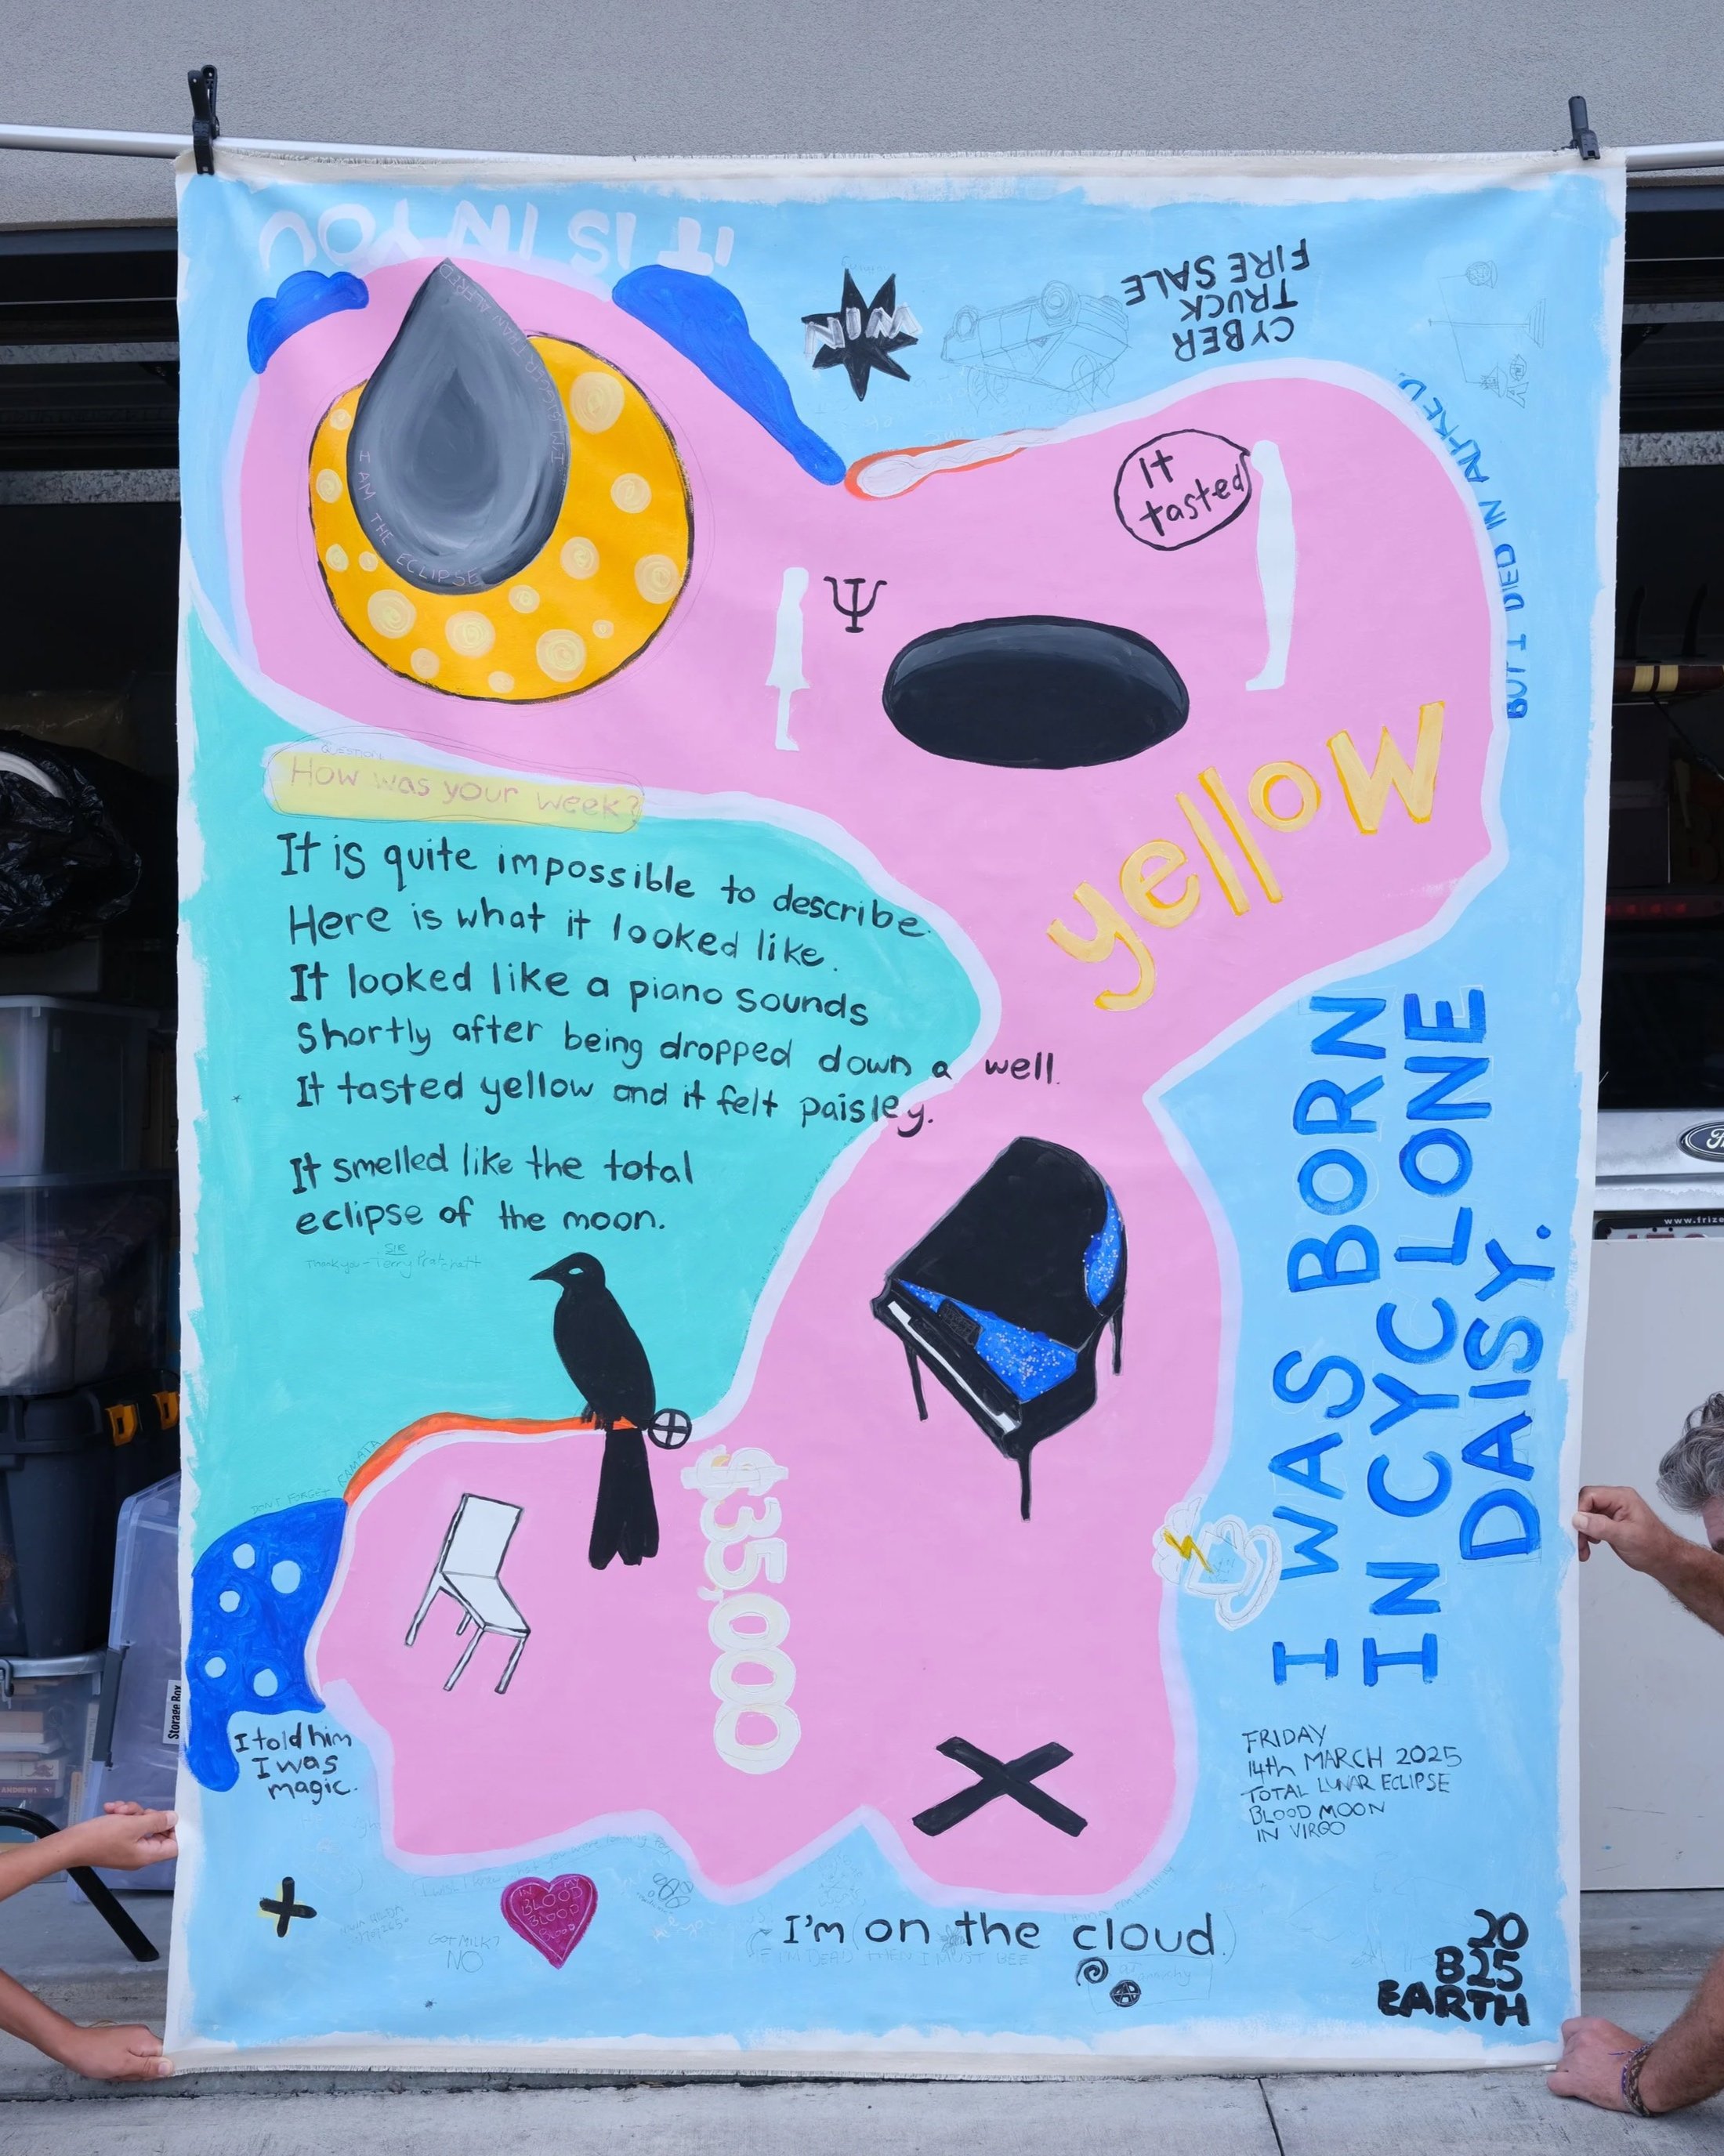 IT IS IN YOU
WIN
CYBER
TRUCK
FIRE SALE
I AM THE ECLIPSE
It
tasted
Ψ
BUT I DIED IN ALFRED.
yellow
QUESTION
How was your week?
It is quite impossible to describe.
Here is what it looked like.
It looked like a piano sounds
shortly after being dropped down a well.
It tasted yellow and it felt paisley.
It smelled like the total
eclipse of the moon.
SIR
Thank you - Terry Pratchett
I WAS BORN
IN CYCLONE
DAISY.
DON'T FORGET ERMATA
$35,000
I told him
I was
magic.
FRIDAY
14th MARCH 2025
TOTAL LUNAR ECLIPSE
BLOOD MOON
IN VIRGO
IN MY
BLOOD
BLOOD
BLOOD
GOT MILK?
NO
I'm on the cloud.
IF I'M DEAD THEN I MUST BEE
20
B25
EARTH
Storage Box